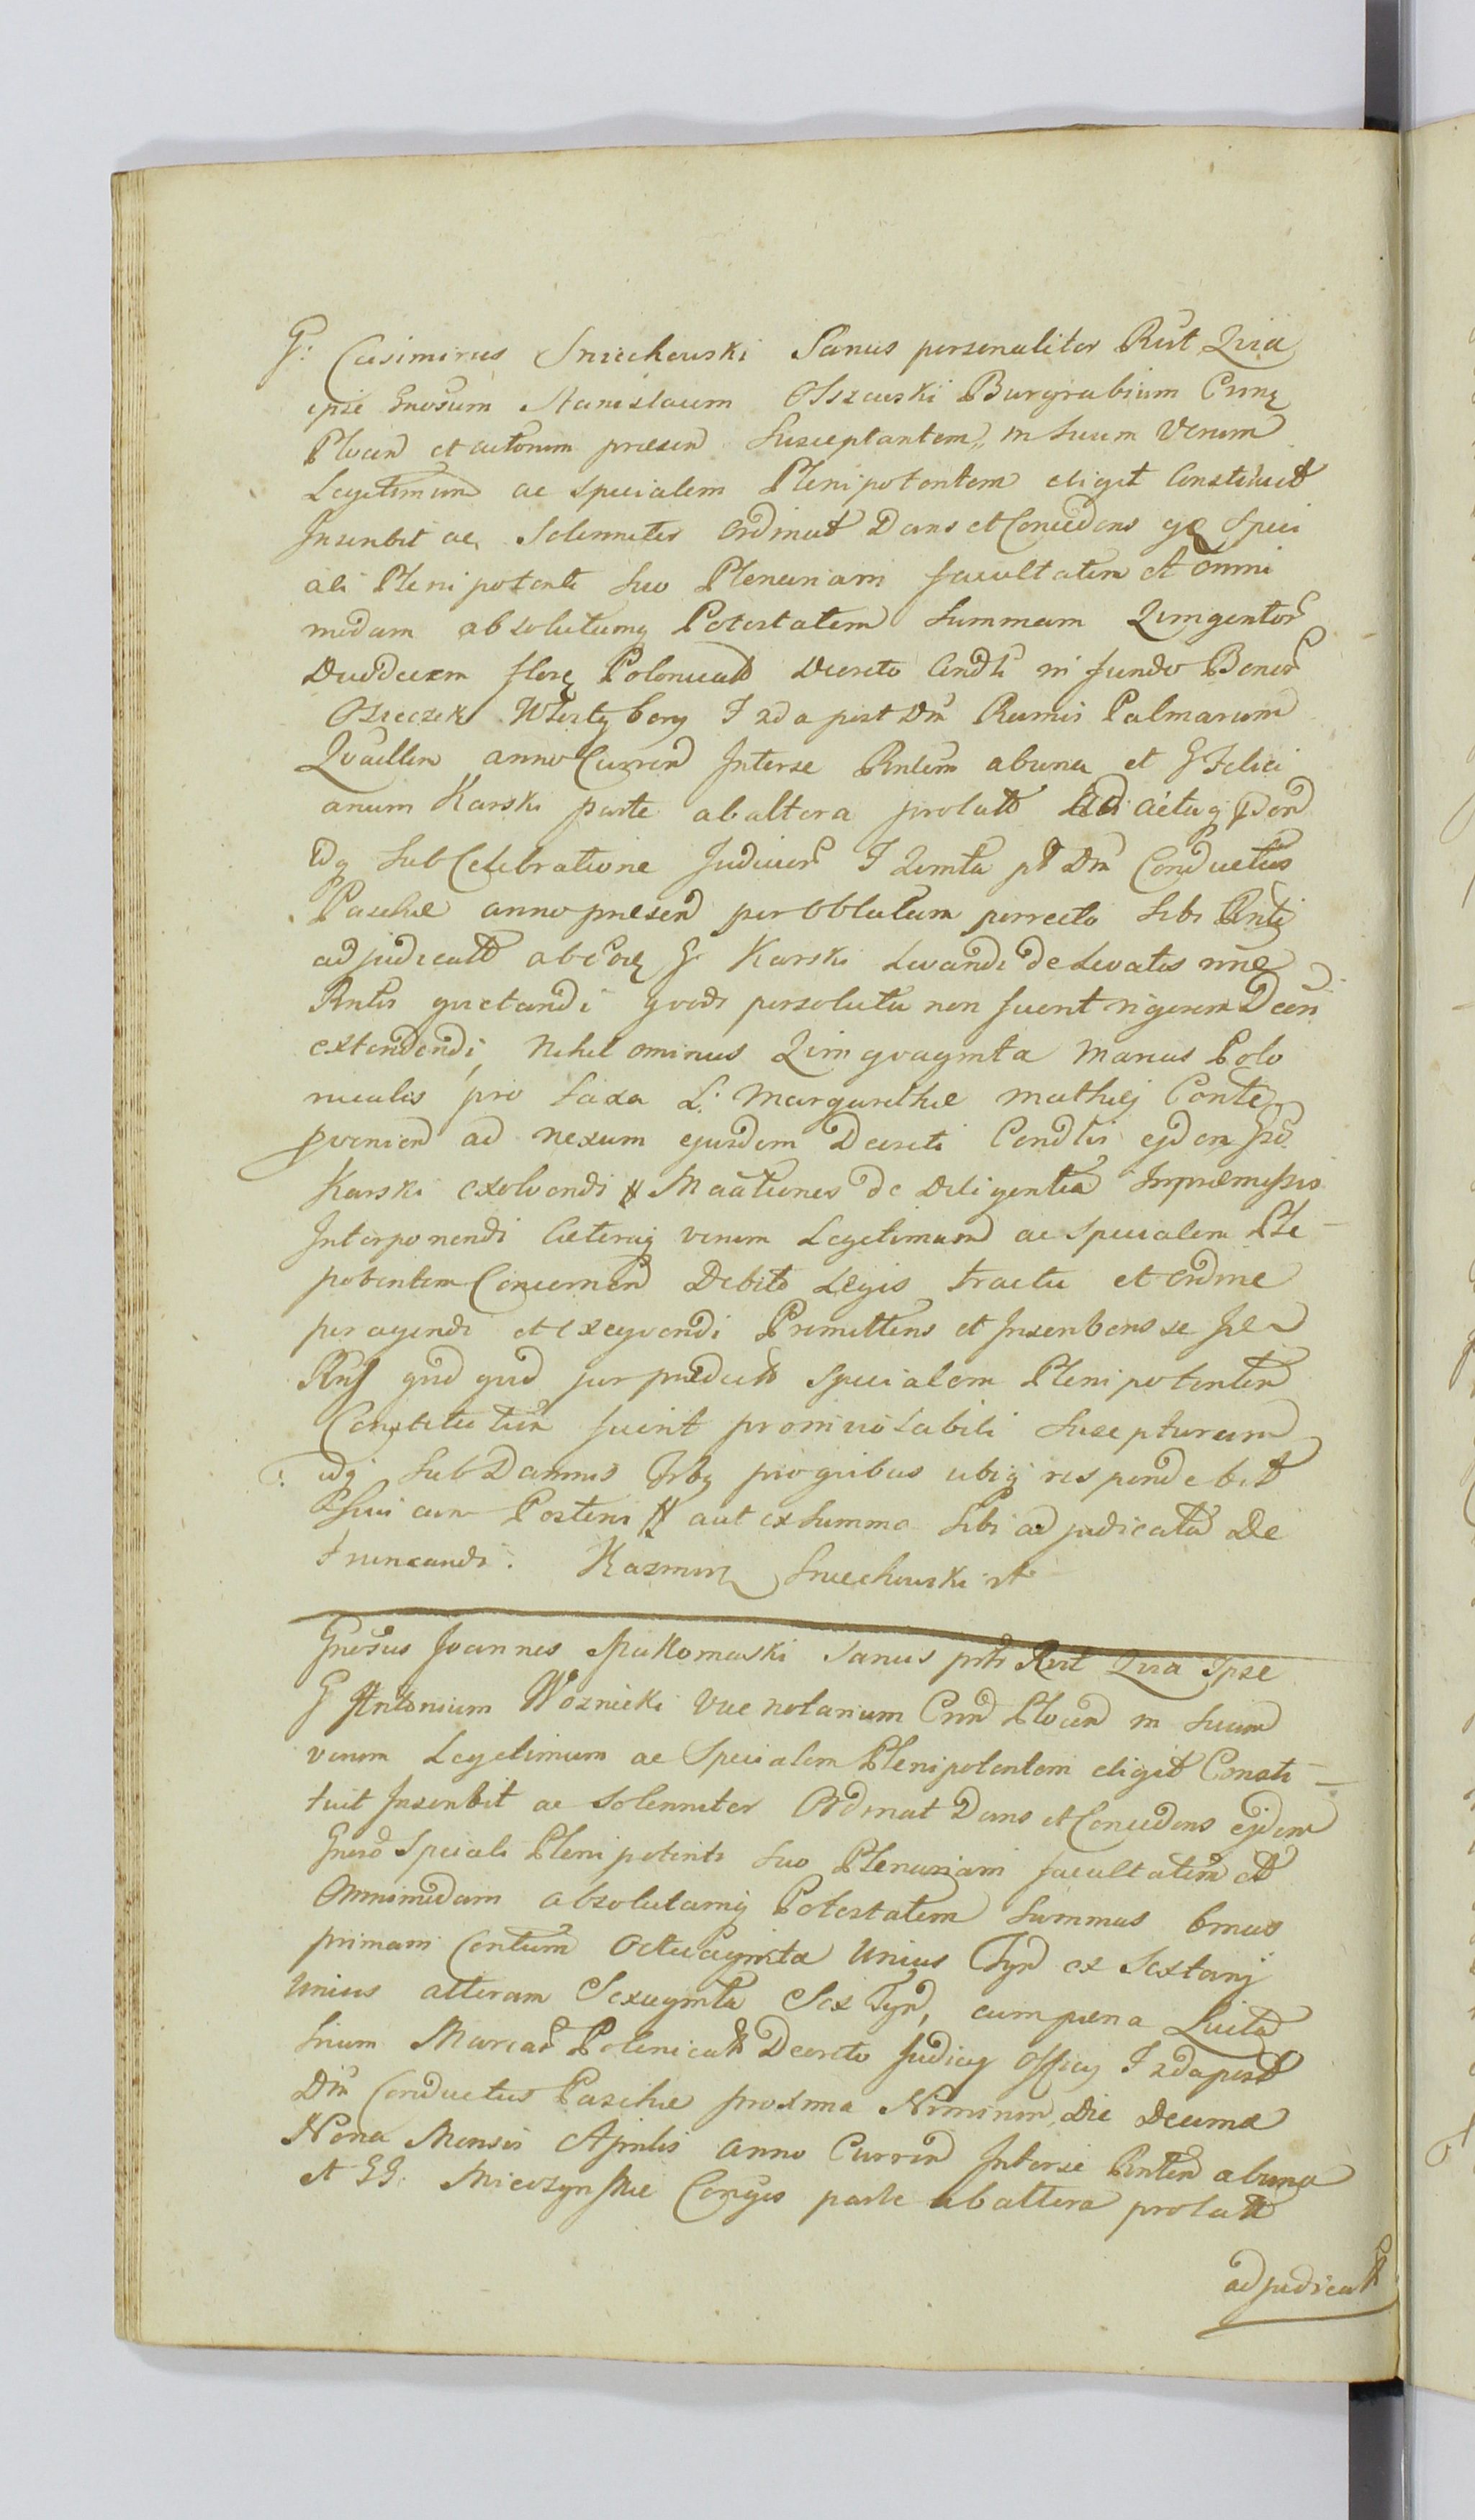 G: Casimirus Sniechowski Sanus personaliter Rlt Quia
ipse Gnosum Stanislaum Olszewski Burgrabium Crinz
Plocen et actorum praesen Susceptantem in Suum Verum
Legitimum ac specialem Plenipotentem eligit Constituit
Inscribit ac Solenniter Ordinat Dans et Concedens gz speci
ali Plenipotenti suo Plenariam facultatem et omni
modam absolutamq Potestatem Summam Quingentor
Duodecim flore Polonicali Decreto Condli in fundo Bonor
Osieczek Wlosty bory F 2da post Dm Ramis Palmarum
anno Curren Interse Rntem abuna et G Felici
anum Karski parte abaltera prolato
idq sub Celebratione Judicior F Quinta pt Dm Conductus
Paschae anno praesen per Oblatam porrecto Sibi Rnti
adjudicatt G Karski Levandi de Levatis nne
Rntis quietandi quodsi persoluta non fuerit rigorem Dcti
extendendi, Nihil ominus Quinquaginta Marcas Polo
nicales pro Laxa L: Margarethae Mathiej Conte
provenien ad nexum ejusdem Decreti Condlis ejdem Gso
Karski exolvendi Maationes de Diligentia Inpraemissis
Interponendi Caeteraq verum Legitimum ac specialem Ple
potentem Concernen Debito Legis tractu et ordine
peragendi et exequendi Promittens et Inscribens se Ise
Rns qnd qnd per praedictt specialem Plenipotenten
Constitutum fuerit proinviolabili Suscepturum
idq Sub Damnis Trbq prioribus ubiq respondebit
Sui cum Posteris aut ex Summa Sibi adjudicata De
truncandi. Kazmirz Sniechowski rt
Gnosus Joannes Spakomaski Sanus prlr Rlt Quia Ipse
G Antonium Woznicki Vice notarium Crin Plocen in Suum
verum Legitimum ac Specialem Plenipotentem eligit Consti
tuit Inscribit ac Solenniter Ordinat Dans et Concedens ejdem
Gnoso Speciali Plenipotenti Suo Plenariam facultatem et
Omnimodam absolutamq Potestatem Summas binas
primam Centum Octuaginta Unius Tyn ex Sextanj
Unius alteram Sexaginta Sex Tyn, cum paena Luita
trium Marcar Polonicali Decreto Judicij Officij F 2da post
Dm Conductus Paschae proxima Nimirum Die Decima
Nona Mensis Aprilis anno Curren Interse Rnten abuna
et GG. Mieczynskie Conjges parte abaltera prolatt
adjudicatt